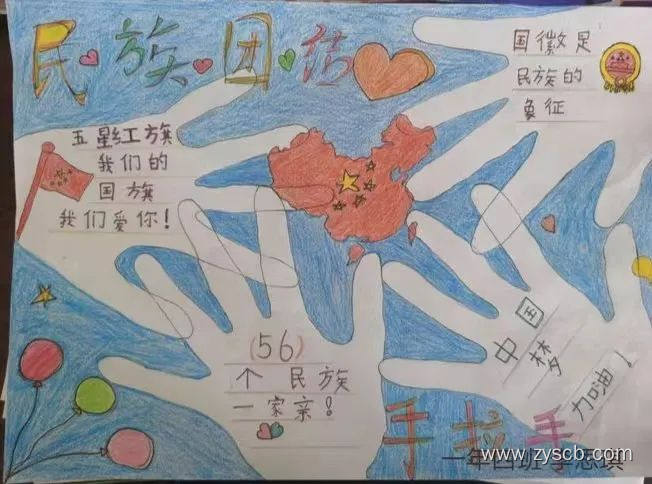 民族团结
国徽是
民族的
象征
五星红旗
我们的
国旗
我们爱你!
(56)
个民族
一家亲!
中国
梦
加油!
手拉手
一年四班 李思琪
www.zyscb.com